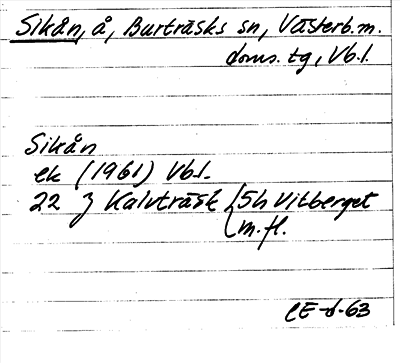 Sikån, å, Burträsks sn, Västerb.m.
doms. tg, Vb.l.
Sikån
ek (1961) Vb.l.
22 J Kalvträsk { 5h Vitberget
m.fl.
CE-d-63